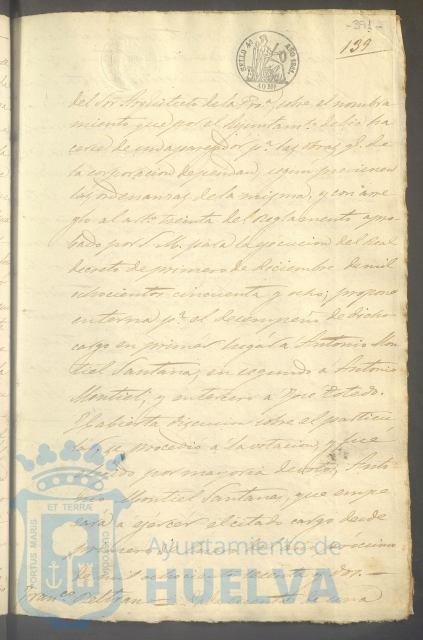 -391-
139
SELLO 4º AÑO 1861.
40 Ms
del Sor Arquitecto de la Proa sobre el nombra
miento que por el Ayuntamto debia ha
cerse de un aparejador pa las obras qe de
la corporacion dependan, segun previenen
las ordenanzas de la misma, y con arre
glo al arto treinta del Reglamento apro
bado por S. M. para la ejecucion del Real
decreto de primero de diciembre de mil
ochocientos cincuenta y ocho; propone
en terna pa el desempeño de dicho
cargo en primer lugar a Antonio Mon
tiel Santana; en segundo a Antonio
Montiel; y en tercero a Jose Toledo.
Y abierta discusion sobre el particu
lar, se procedio a la votacion, y fue
por mayoria de votos, Anto
nio Montiel Santana, que empe
zará a ejercer el citado cargo desde
primero de
de mil ochocientos sesenta y dos.
Franco Beltran
PORTUS MARIS ET TERRÆ CUSTODIA
Ayuntamiento de
HUELVA